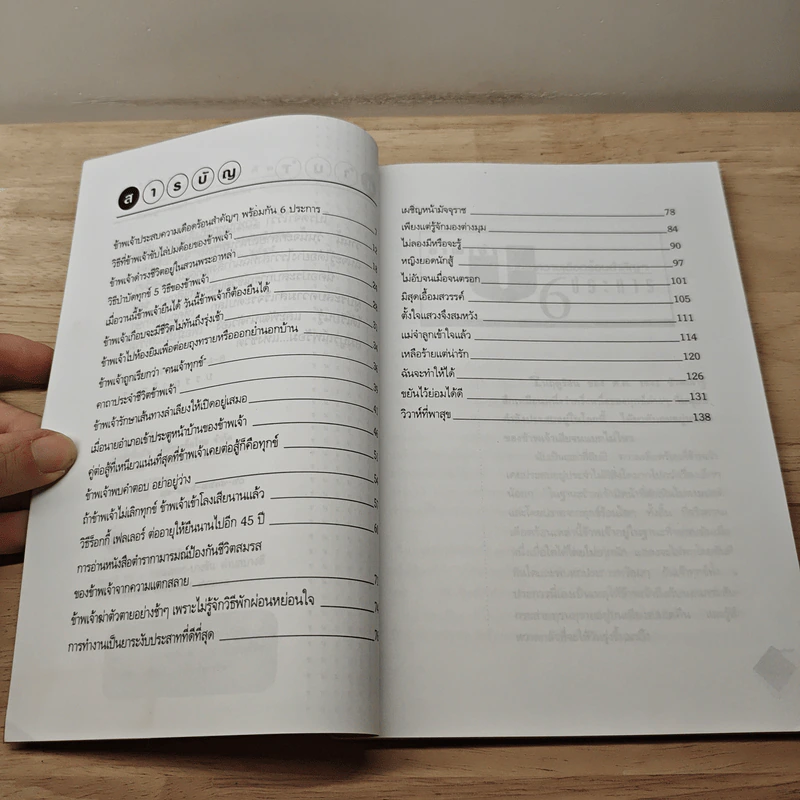 สารบัญ
ข้าพเจ้าประสบความเดือดร้อนสำคัญๆ พร้อมกัน 6 ประการ
วิธีที่ข้าพเจ้าขับไล่ปมด้อยของข้าพเจ้า
ข้าพเจ้าดำรงชีวิตอยู่ในสวนพระอาหล่า
วิธีบำบัดทุกข์ 5 วิธีของข้าพเจ้า
เมื่อวานนี้ข้าพเจ้ายืนได้ วันนี้ข้าพเจ้าก็ต้องยืนได้
ข้าพเจ้าเกือบจะมีชีวิตไม่ทันถึงรุ่งเช้า
ข้าพเจ้าไปห้องยิมเพื่อต่อยถุงทรายหรือออกย่ำนอกบ้าน
ข้าพเจ้าถูกเรียกว่า "คนเจ้าทุกข์"
คาถาประจำชีวิตข้าพเจ้า
ข้าพเจ้ารักษาเส้นทางลำเลียงให้เปิดอยู่เสมอ
เมื่อนายอำเภอเข้าประตูหน้าบ้านของข้าพเจ้า
คู่ต่อสู้ที่เหนียวแน่นที่สุดที่ข้าพเจ้าเคยต่อสู้ก็คือทุกข์
ข้าพเจ้าพบคำตอบ อย่าอยู่ว่าง
ถ้าข้าพเจ้าไม่เลิกทุกข์ ข้าพเจ้าเข้าโลงเสียนานแล้ว
วิธีร็อกกี้ เฟลเลอร์ ต่ออายุให้ยืนนานไปอีก 45 ปี
การอ่านหนังสือตำรากามารมณ์ป้องกันชีวิตสมรส
ของข้าพเจ้าจากความแตกสลาย
ข้าพเจ้าฆ่าตัวตายอย่างช้าๆ เพราะไม่รู้จักวิธีพักผ่อนหย่อนใจ
การทำงานเป็นยาระงับประสาทที่ดีที่สุด
เผชิญหน้ามัจจุราช 78
เพียงแต่รู้จักมองต่างมุม 84
ไม่ลองมีหรือจะรู้ 90
หญิงยอดนักสู้ 97
ไม่อับจนเมื่อจนตรอก 101
มีสุดเอื้อมสวรรค์ 105
ตั้งใจแสวงจึงสมหวัง 111
แม่จ๋าลูกเข้าใจแล้ว 114
เหลือร้ายแต่น่ารัก 120
ฉันจะทำให้ได้ 126
ขยันไว้ย่อมได้ดี 131
วิวาห์ที่พาสุข 138